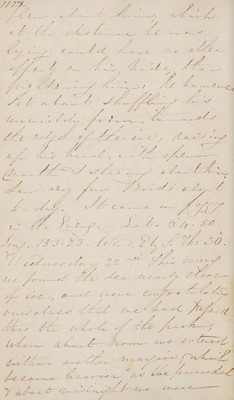 flew about him, which
at the distance he was
lying could have no other
effect on his hide, than
frightening him; he however
set about shuffling his
unwieldy form, towards
the edge of the ice, raising
up his head, with open
mouth & staring about him.
In very fine Birds slept
to day. It came on foggy
in the Evng. Lat. 64.50.
Long. 153.23. Wd. Ely. Thr. 30°.
Wednesday 22nd This morng.
we found the sea nearly clear
of ice, and were congratulating
ourselves that we had passed
thro the whole of the pack,
when about noon we entered
within another margin, which
became heavier as we proceeded
& about midnight we were